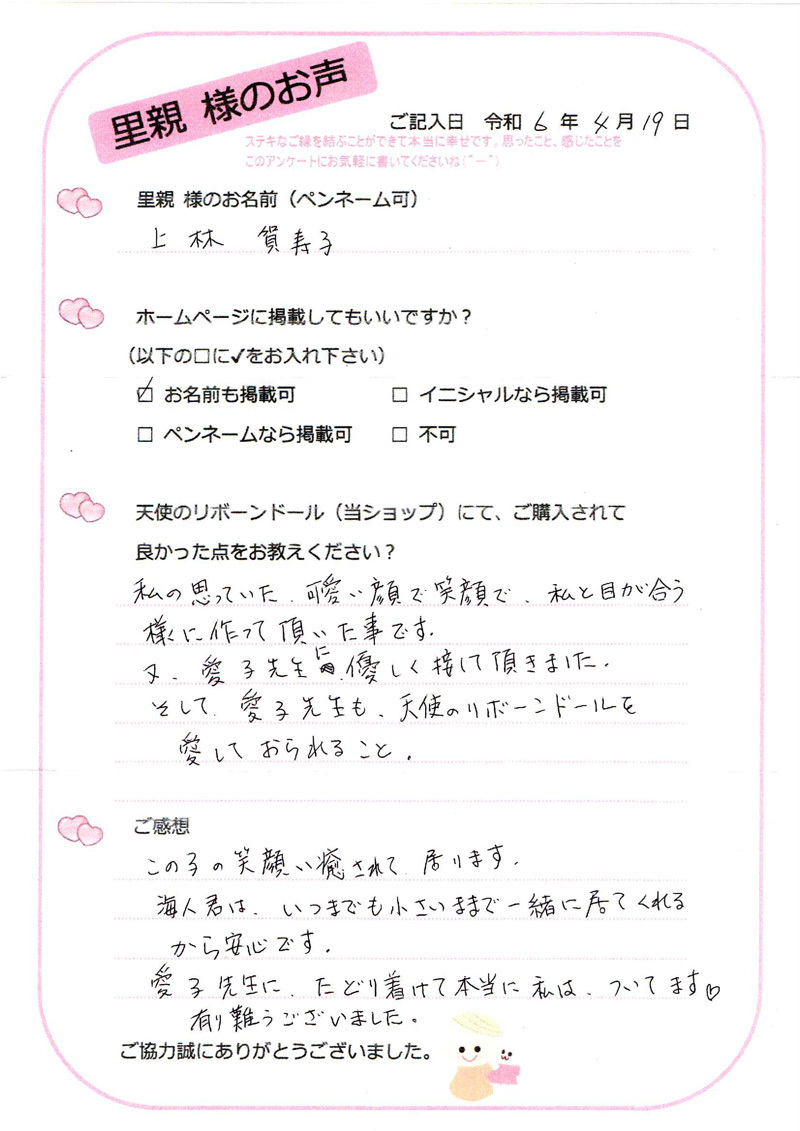 里親 様のお声
ご記入日 令和 6 年 4 月 19 日
ステキなご縁を結ぶことができて本当に幸せです。思ったこと、感じたことを
このアンケートにお気軽に書いてくださいね(＾ー＾)
里親 様のお名前（ペンネーム可）
上林 賀寿子
ホームページに掲載してもいいですか？
（以下の□に✔をお入れ下さい）
☑ お名前も掲載可 □ イニシャルなら掲載可
□ ペンネームなら掲載可 □ 不可
天使のリボーンドール（当ショップ）にて、ご購入されて
良かった点をお教えください？
私の思っていた、可愛い顔で笑顔で、私と目が合う
様に作って頂いた事です。
又、愛子先生に優しく接して頂きました。
そして、愛子先生も、天使のリボーンドールを
愛しておられること。
ご感想
この子の笑顔い癒されて居ります。
海人君は、いつまでも小さいままで一緒に居てくれる
から安心です。
愛子先生に、たどり着けて本当に私は、ついてます♡
有り難うございました。
ご協力誠にありがとうございました。